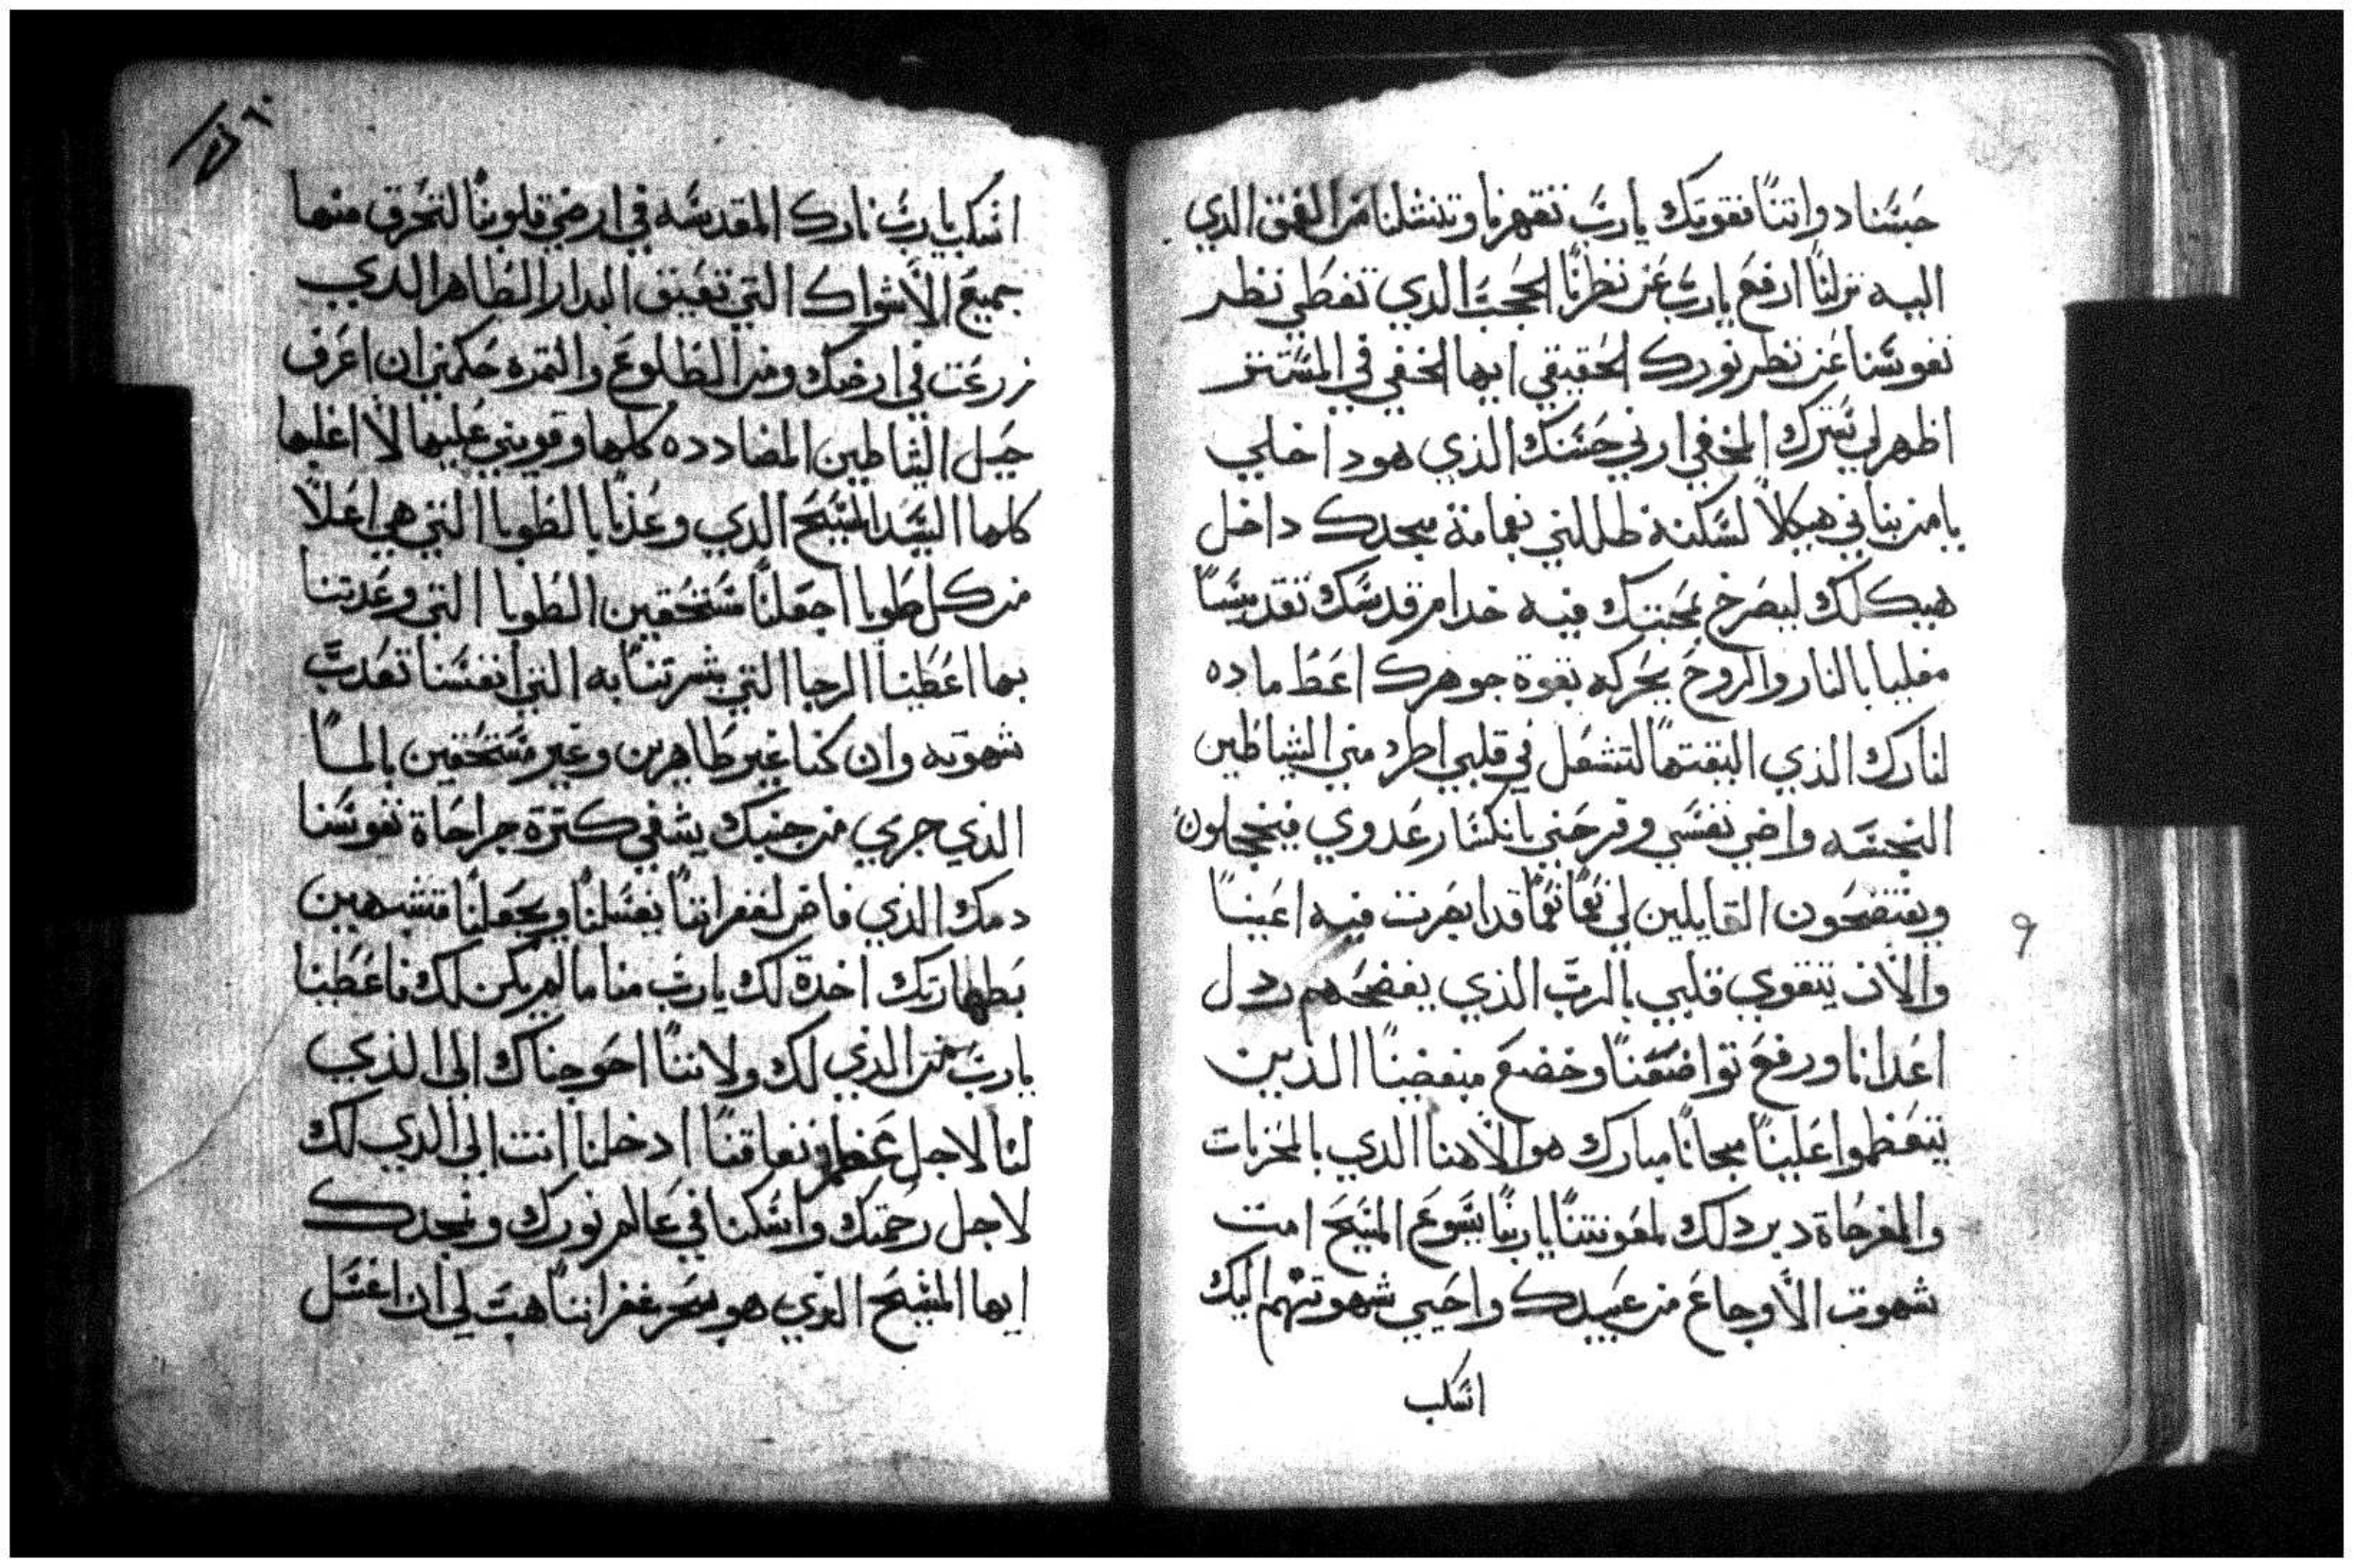 حبسنا دواتنا نقوتك يارب تقهرنا وتنشلنا من العمق الدي
اليه نزلنا ارفع يارب عن نظرنا الحجب الدي تغطي نظر
نفوسنا عن نظر نورك الحقيقي ايها الخفي في المستتر
اظهر لي سترك المخفي ارني حسنك الذي هو داخلي
يا من بناني هيكلاً لسكنة ظللني بغمامة مجدك داخل
هيكلك ليصرخ بمحبتك فيه خدام قدسك تقديسًا
مغليا بالنار والروح يحركه بقوة جوهرك اعط ماده
لنارك الذي القيتها لتشعل في قلبي اطرد مني الشياطين
النجسه واضي نفسي وفرحني بانكسار عدوي فيخجلون
ويفتضحون القايلين لي نعمًا نعمًا قد ابصرت فيه اعيننا
والآن يتقوي قلبي بالرب الذي يفضحهم ردل
اعدانا ورفع تواضعنا وخضع مبغضينا الذين
يتعظموا علينا مجانًا مبارك هو الاهنا الدي بالمخزيات
والمفرحاة دبر دلك لمعونتنا ياربنا يسوع المسيح امت
شهوت الأوجاع من عبيدك واحيي شهوتهم اليك
اسكب
٩
اسكب يارب نارك المقدسه في ارض قلوبنا لتحرق منها
جميع الأشواك التي تعيق البدار الطاهر الدي
زرعت في ارضك ومن الطلوع والثمره حكمني ان اعرف
حيل الشياطين المضادده كلها وقويني عليها لا اغلبها
كلها السيد المسيح الدي وعدنا بالطوبا التي هي اعلا
من كل طوبا اجعلنا مستحقين الطوبا التي وعدتنا
بها اعطينا الرجا التي بشرتنا به التي انفسنا تعدب
شهوته وان كنا غير طاهرين وغير مستحقين بالما
الذي جري من جنبك يشفي كترة جراحاة نفوسنا
دمك الذي فاض لغفراننا يغسلنا ويجعلنا متشبهين
بطهارتك اخدة لك يارب منا ما لم يكن لك فاعطينا
يارب من الذي لك ولاننا احوجناك الى الذي
لنا لاجل عظم نفاقنا ادخلنا انت الى الدي لك
لاجل رحمتك واسكنا في عالم نورك ومجدك
ايها المسيح الذي هو بحر غفراننا هب لي ان اغتسل